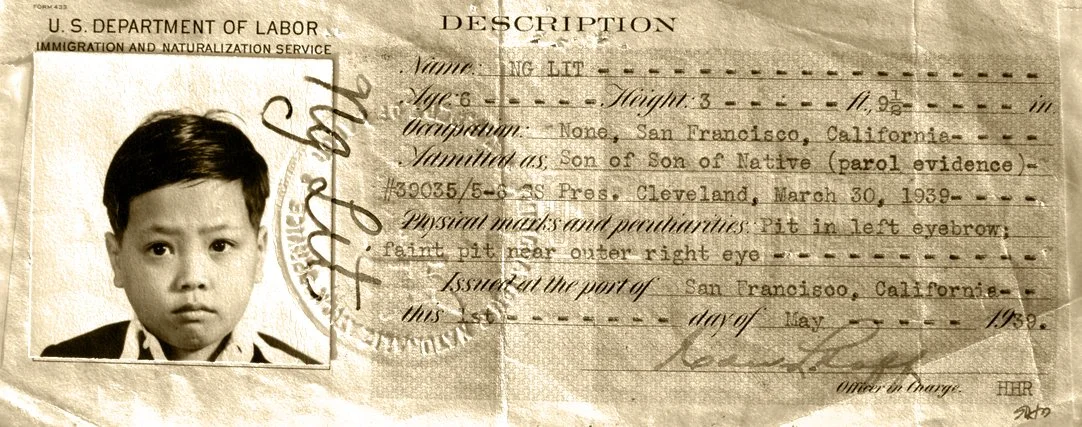 FORM 433
U. S. DEPARTMENT OF LABOR
IMMIGRATION AND NATURALIZATION SERVICE
Ng Lit
DESCRIPTION
Name: NG LIT
Age: 6 Height: 3 ft. 9½ in
Occupation: None, San Francisco, California
Admitted as Son of Son of Native (parol evidence)
#39035/5-6 SS Pres. Cleveland, March 30, 1939
Physical marks and peculiarities: Pit in left eyebrow;
faint pit near outer right eye
Issued at the port of San Francisco, California
this 1st day of May 1939.
Officer in Charge. HHR